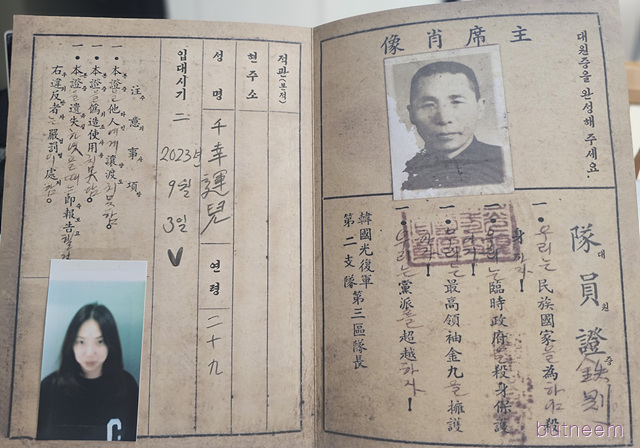 主席肖像
대원증을 완성해 주세요.
隊員證
대원증
一·우리는 民族國家를 為하야 殺
身하자!
一·우리는 臨時政府를 殺身保護
一·우리는 最高領袖金九를 擁護
一·우리는 黨派를 超越하자!
韓國光復軍
第二支隊第三區隊長
적관(본적)
현주소
성명 千幸運兒 연령 二十九
입대시기 二 2023년 9월 3일
注意事項
一·本證을 他人에게 讓渡치못함
一·本證을 僞造使用치못함
一·本證을 遺失하였을때는 即報告할것
右違反者는 嚴罰에處함
C
butneem